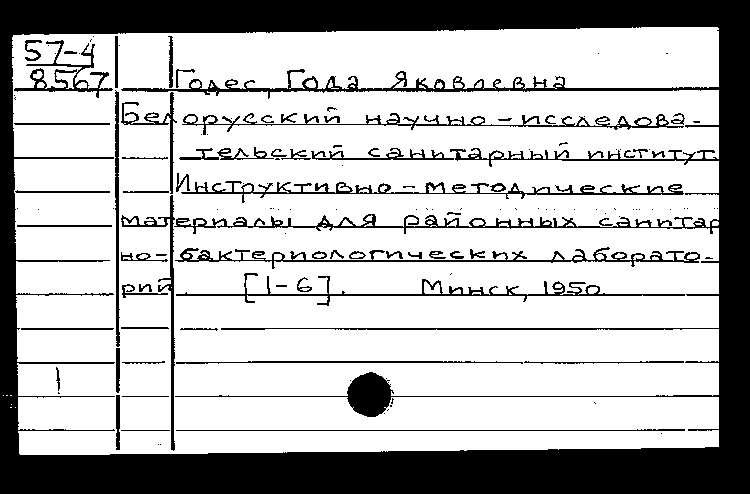 57-4
8567
Годес, Года Яковлевна
Белорусский научно-исследова-
тельский санитарный институт.
Инструктивно-методические
материалы для районных санитар
но-бактериологических лаборато-
рий. [1-6]. Минск, 1950.
1